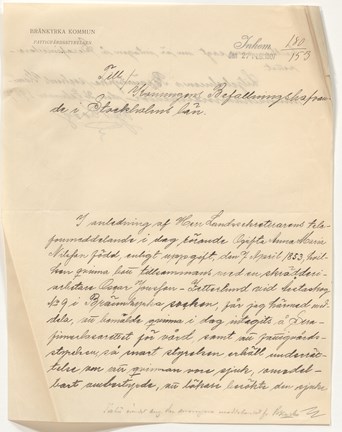 BRÄNKYRKA KOMMUN
FATTIGVÅRDSSTYRELSE
Inkom
Till
Konungens Befallningshafvan-
de i Stockholms län.
I anledning af Herr Landssekreterarens tele-
fonmeddelande i dag, rörande Ogifta Anna Maria
född, enligt uppgift, den 7 April 1853, hvil-
ken qvinna bott tillsammans med en skrädderi-
arbetare Oscar Josefsson-Zetterlund vid
No 9 i Brännkyrka socken, får jag härmed med-
dela, att bemälde qvinna i dag intagits å
för vård samt att fattigvårds-
styrelsen, så snart styrelsen erhållit underrät-
telse om att qvinnan vore sjuk, omedel-
bart ombestyrde, att läkare besökte den sjuka